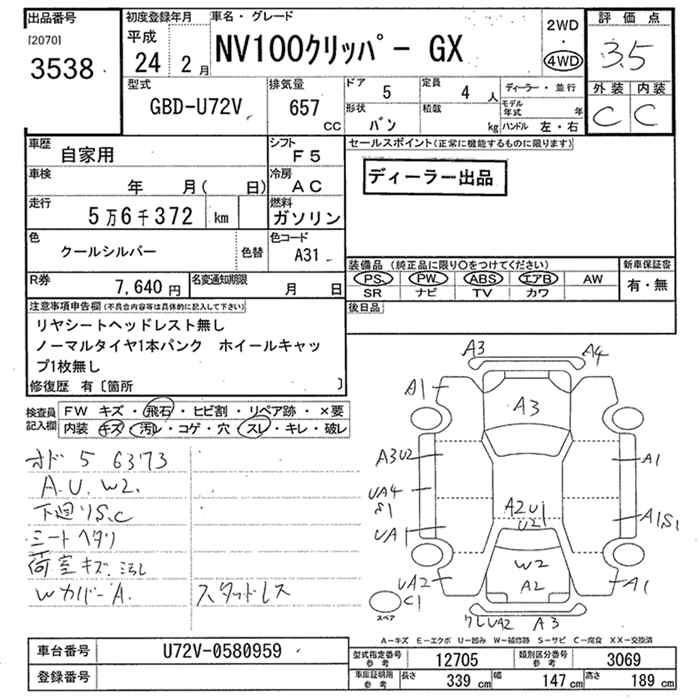 出品番号
[2070]
3538
初度登録年月
平成
24 2月
車名・グレード
NV100クリッパー GX
2WD
・
4WD
評価点
3.5
外装 内装
C C
型式
GBD-U72V
排気量
657
CC
ドア
5
定員
4 人
形状
バン
積載
kg
ディーラー・並行
モデル年式 年
ハンドル 左・右
車歴
自家用
シフト
F5
車検
年 月( 日)
冷房
AC
走行
5万6千372 km
燃料
ガソリン
色
クールシルバー
色替
色コード
A31
R券
7,640円
名変通知期限
月 日
セールスポイント(正常に機能するものに限ります)
ディーラー出品
装備品 (純正品に限り〇をつけてください)
PS PW ABS エアB AW
SR ナビ TV カワ
新車保証書
有・無
後日品
注意事項申告欄(不具合内容等は具体的に記入して下さい)
リヤシートヘッドレスト無し
ノーマルタイヤ1本パンク ホイールキャッ
プ1枚無し
修復歴 有〔箇所 〕
検査員
記入欄
FW キズ・飛石・ヒビ割・リペア跡・×要
内装 キズ・汚レ・コゲ・穴・スレ・キレ・破レ
オド 5 6373
A.U.W2.
下廻りS.C
シートヘタリ
荷室キズ.汚れ
Wカバー A.
スタッドレス
A3 A4
A1
A3
A3U2
A1
UA4
S1
A2U1
U2
A1S1
UA1
W2
UA2
A2
A1
C1
スペア
ワレUA2 A3
A-キズ E-エクボ U-凹み W-補修跡 S-サビ C-腐食 XX-交換済
車台番号
U72V-0580959
登録番号
型式指定番号
参考
12705
類別区分番号
参考
3069
車庫証明用
参考
長さ 339 cm 幅 147 cm 高さ 189 cm